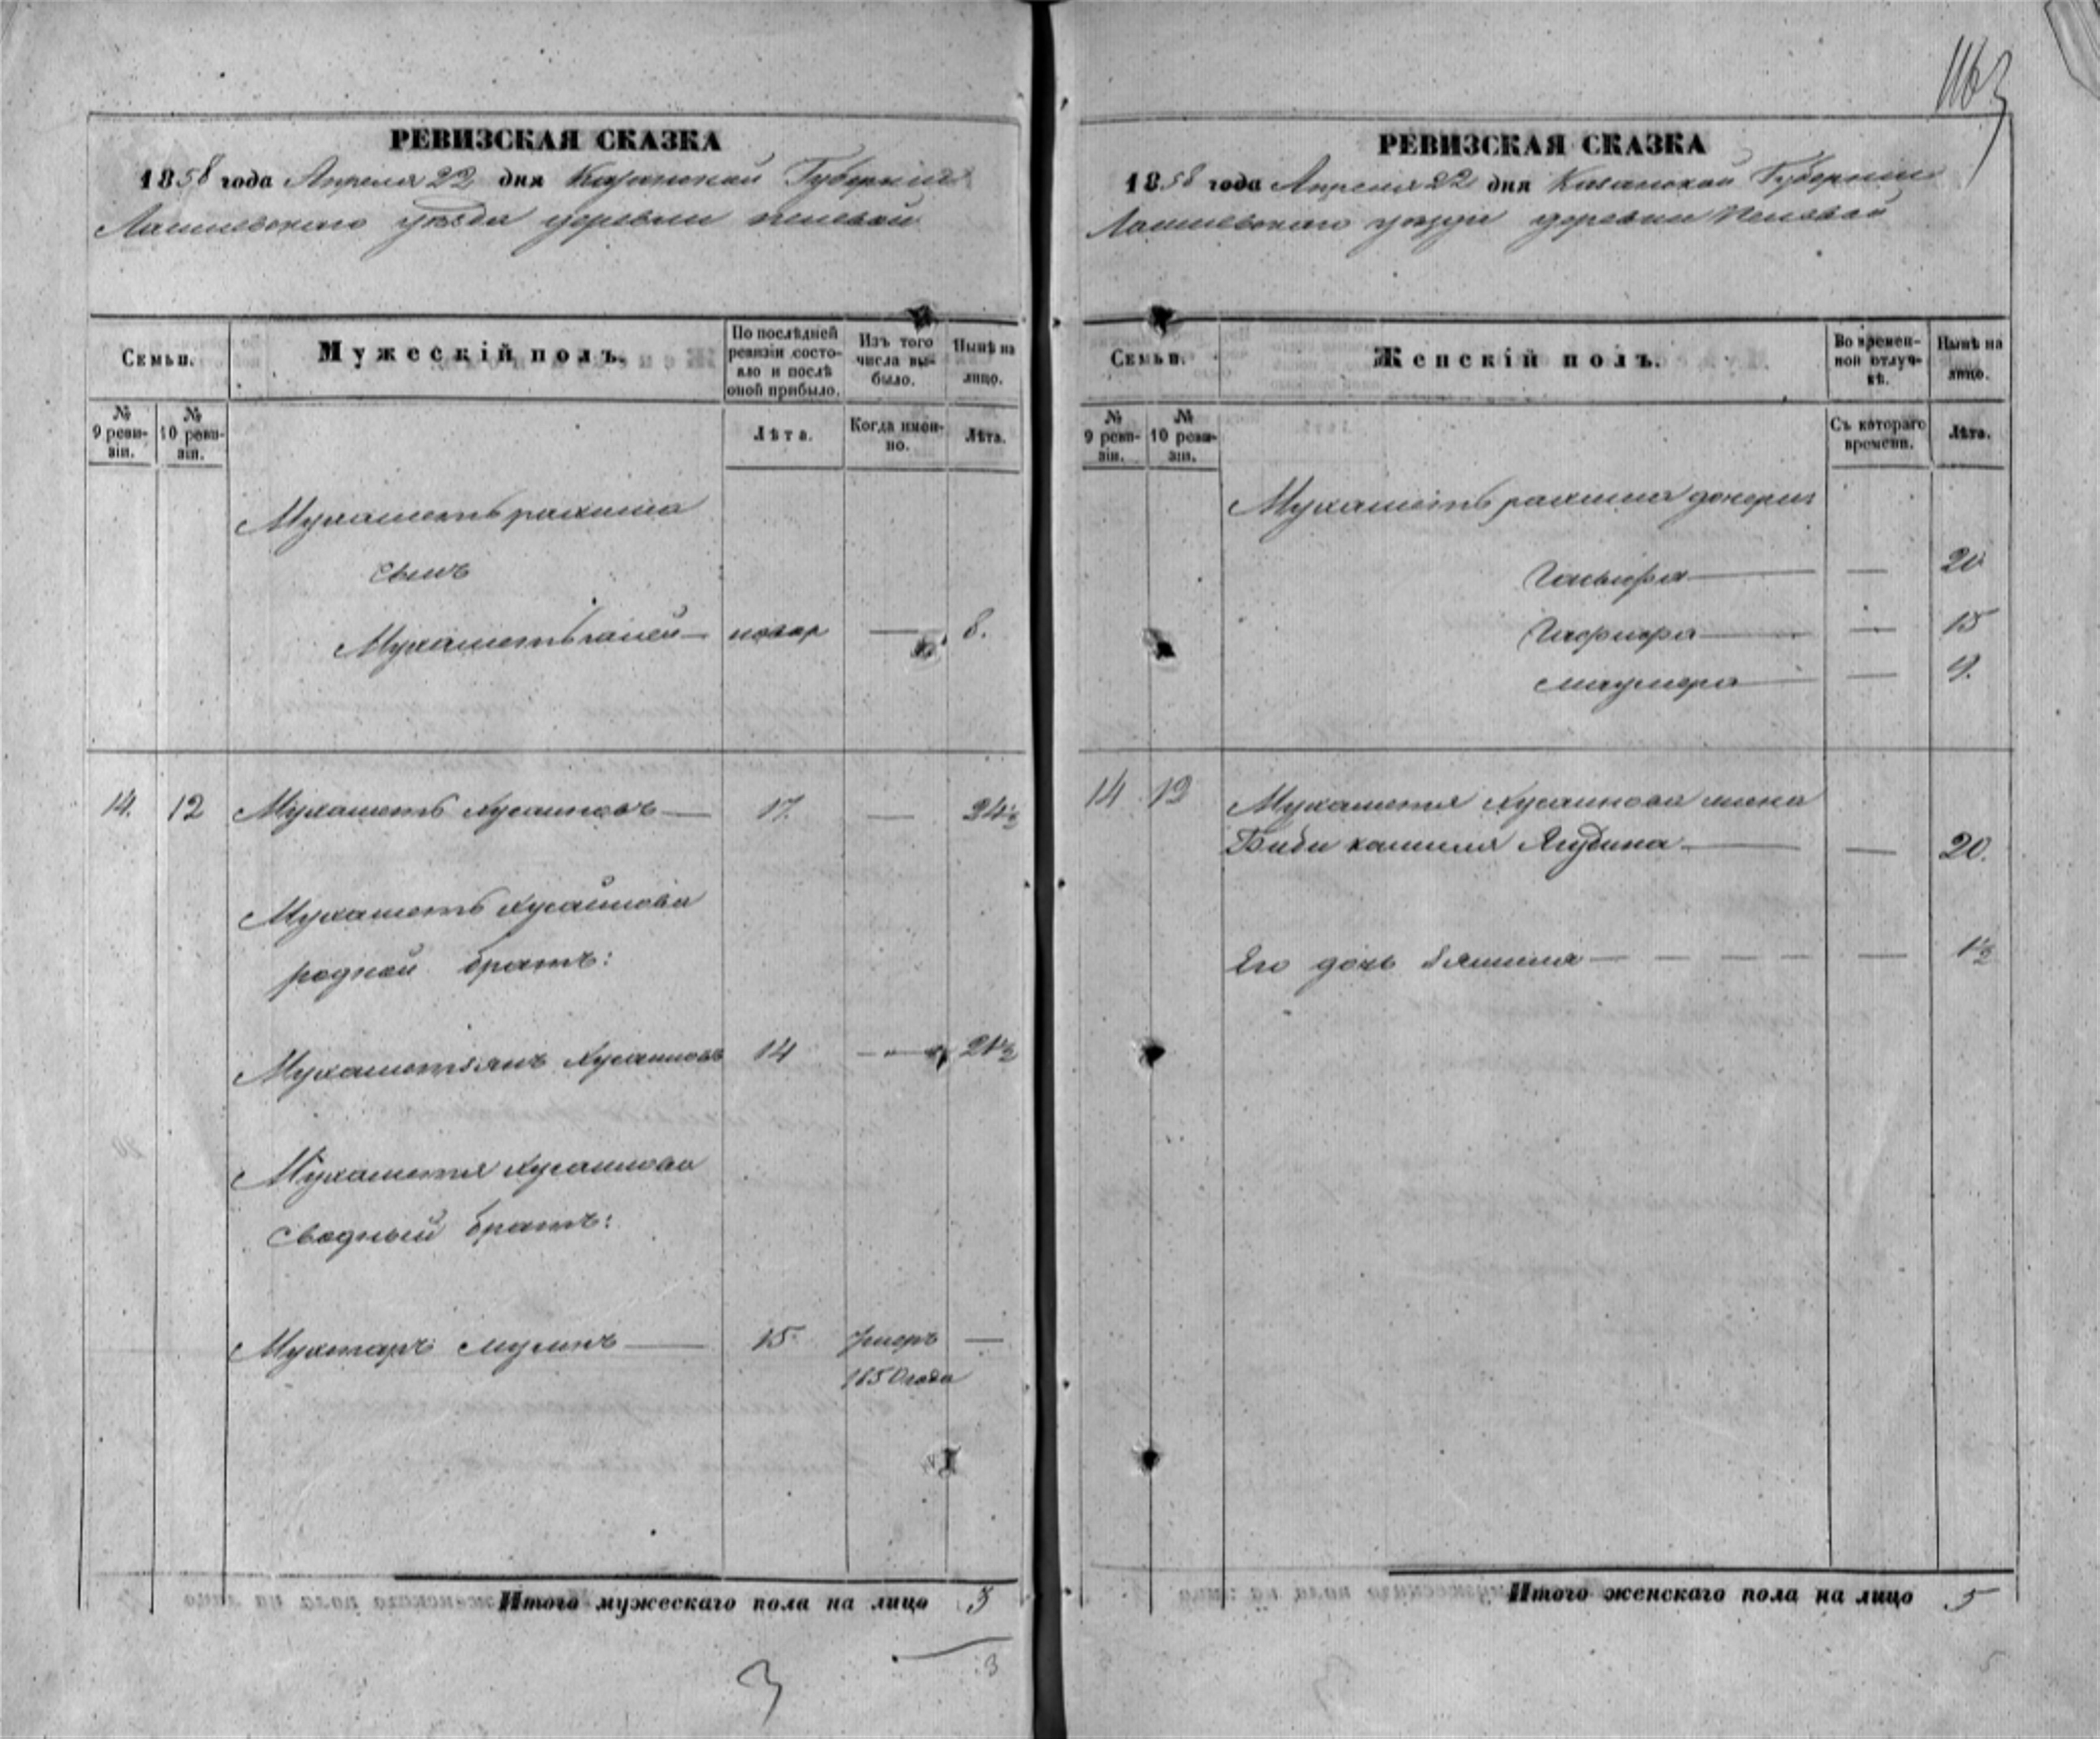 РЕВИЗСКАЯ СКАЗКА
1858 года Апреля 22 дня Казанской Губернии
Лаишевского уезда деревни
Семьи.
Мужескій полъ.
По послѣдней ревизіи состояло и послѣ оной прибыло.
Изъ того числа выбыло.
Нынѣ на лицо.
№ 9 ревизіи.
№ 10 ревизіи.
Лѣта.
Когда именно.
Лѣта.
Мухаметь рахима
сынъ
Мухаметь — — 8.
14. 12 Мухаметь Хусаиновъ — 17. — 24½
Мухаметь Хусаинова
родной братъ:
Мухаметзянъ Хусаиновъ 14 — 21½
Мухаметя Хусаинова
сводный братъ:
Мухтаръ — 15 Умеръ —
1850 года
Итого мужескаго пола на лицо 3
3
3
РЕВИЗСКАЯ СКАЗКА
1858 года Апреля 22 дня Казанской Губернии
Лаишевского уезда деревни
Семьи.
Женскій полъ.
Во временной отлучкѣ.
Нынѣ на лицо.
№ 9 ревизіи.
№ 10 ревизіи.
Съ котораго времени.
Лѣта.
Мухаметь рахима дочери
— — 20
— — 15
— — 9.
14 12 Мухаметя Хусаинова жена
Биби Ягудина — — 20.
Его дочь — — 1½
Итого женскаго пола на лицо 5